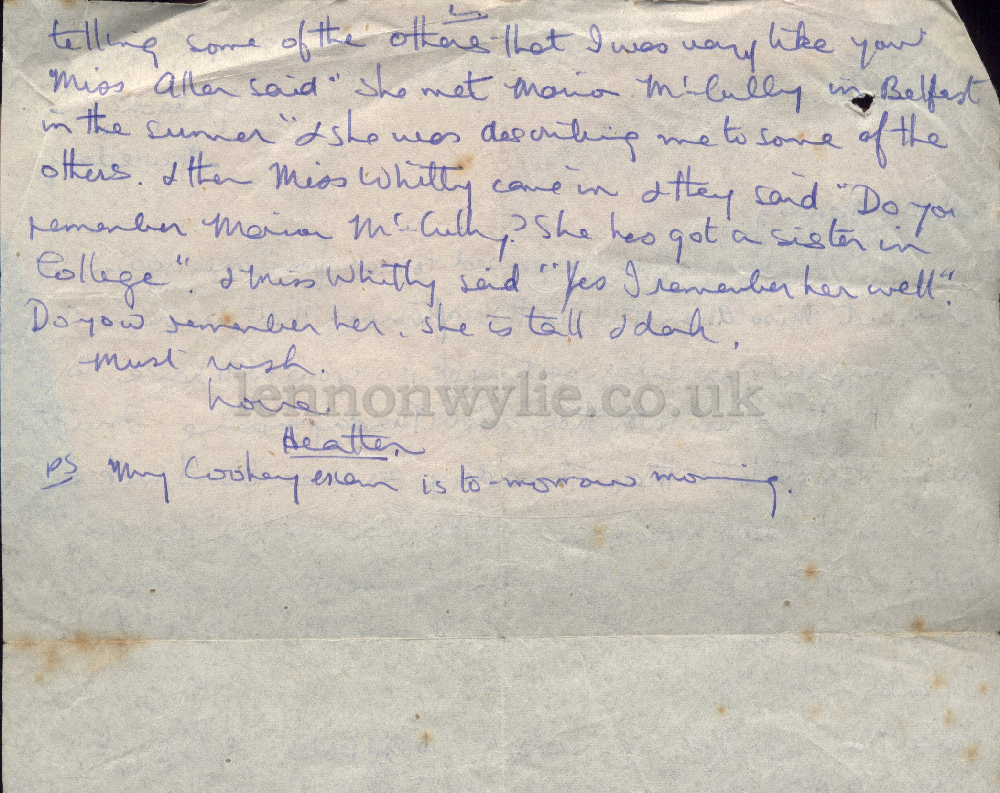 telling some of the others that I was very like you
Miss Allen said "She met Marion McCully in Belfast
in the summer" & she was describing me to some of the
others. & then Miss Whitty came in & they said "Do you
remember Marion McCully? She has got a sister in
College". & Miss Whitty said "Yes I remember her well".
Do you remember her. She is tall & dark,
Must rush.
Love
lennonwylie.co.uk
Heather
PS My Cookery exam is to-morrow morning.